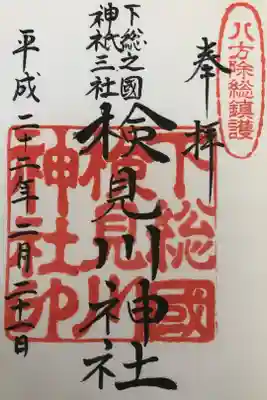 八方除総鎮護
奉拝
下総國検見川神社印
検見川神社
下総之國
神祇三社
平成二十二年二月二十一日